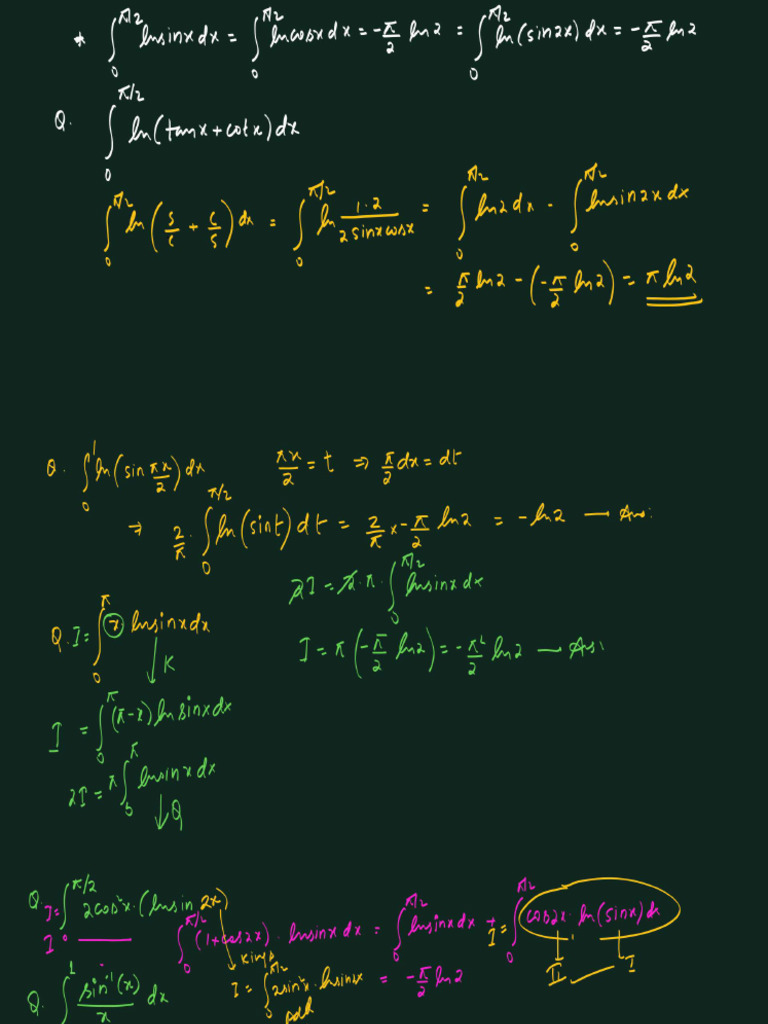 * ∫₀^{π/2} ln sinx dx = ∫₀^{π/2} ln cosx dx = -π/2 ln2 = ∫₀^{π/2} ln(sin2x) dx = -π/2 ln2
Q. ∫₀^{π/2} ln(tanx + cotx) dx
∫₀^{π/2} ln(s/c + c/s) dx = ∫₀^{π/2} ln (1·2)/(2 sinx cosx) = ∫₀^{π/2} ln2 dx - ∫₀^{π/2} ln sin2x dx
= π/2 ln2 - (-π/2 ln2) = π ln2
Q. ∫₀^1 ln(sin πx/2) dx    πx/2 = t ⇒ π/2 dx = dt
⇒ 2/π · ∫₀^{π/2} ln(sint) dt = 2/π × -π/2 ln2 = -ln2 — Ans:
2I = 2·π · ∫₀^{π/2} ln sinx dx
Q. I = ∫₀^π x ln sinx dx
I = π(-π/2 ln2) = -π²/2 ln2 — Ans:
↓ K
I = ∫₀^π (π-x) ln sinx dx
2I = π ∫₀^π ln sinx dx
↓ Q
Q. I = ∫₀^{π/2} 2cos²x · (ln sin 2x)
I = ∫₀^{π/2} (1+cos2x) · ln sinx dx = ∫₀^{π/2} ln sinx dx + I = ∫₀^{π/2} cos2x · ln(sinx) dx
King
II I
I = ∫₀^{π/2} 2sin²x · ln sin2x = -π/2 ln2
add
Q. ∫₀^1 sin⁻¹(x)/x dx